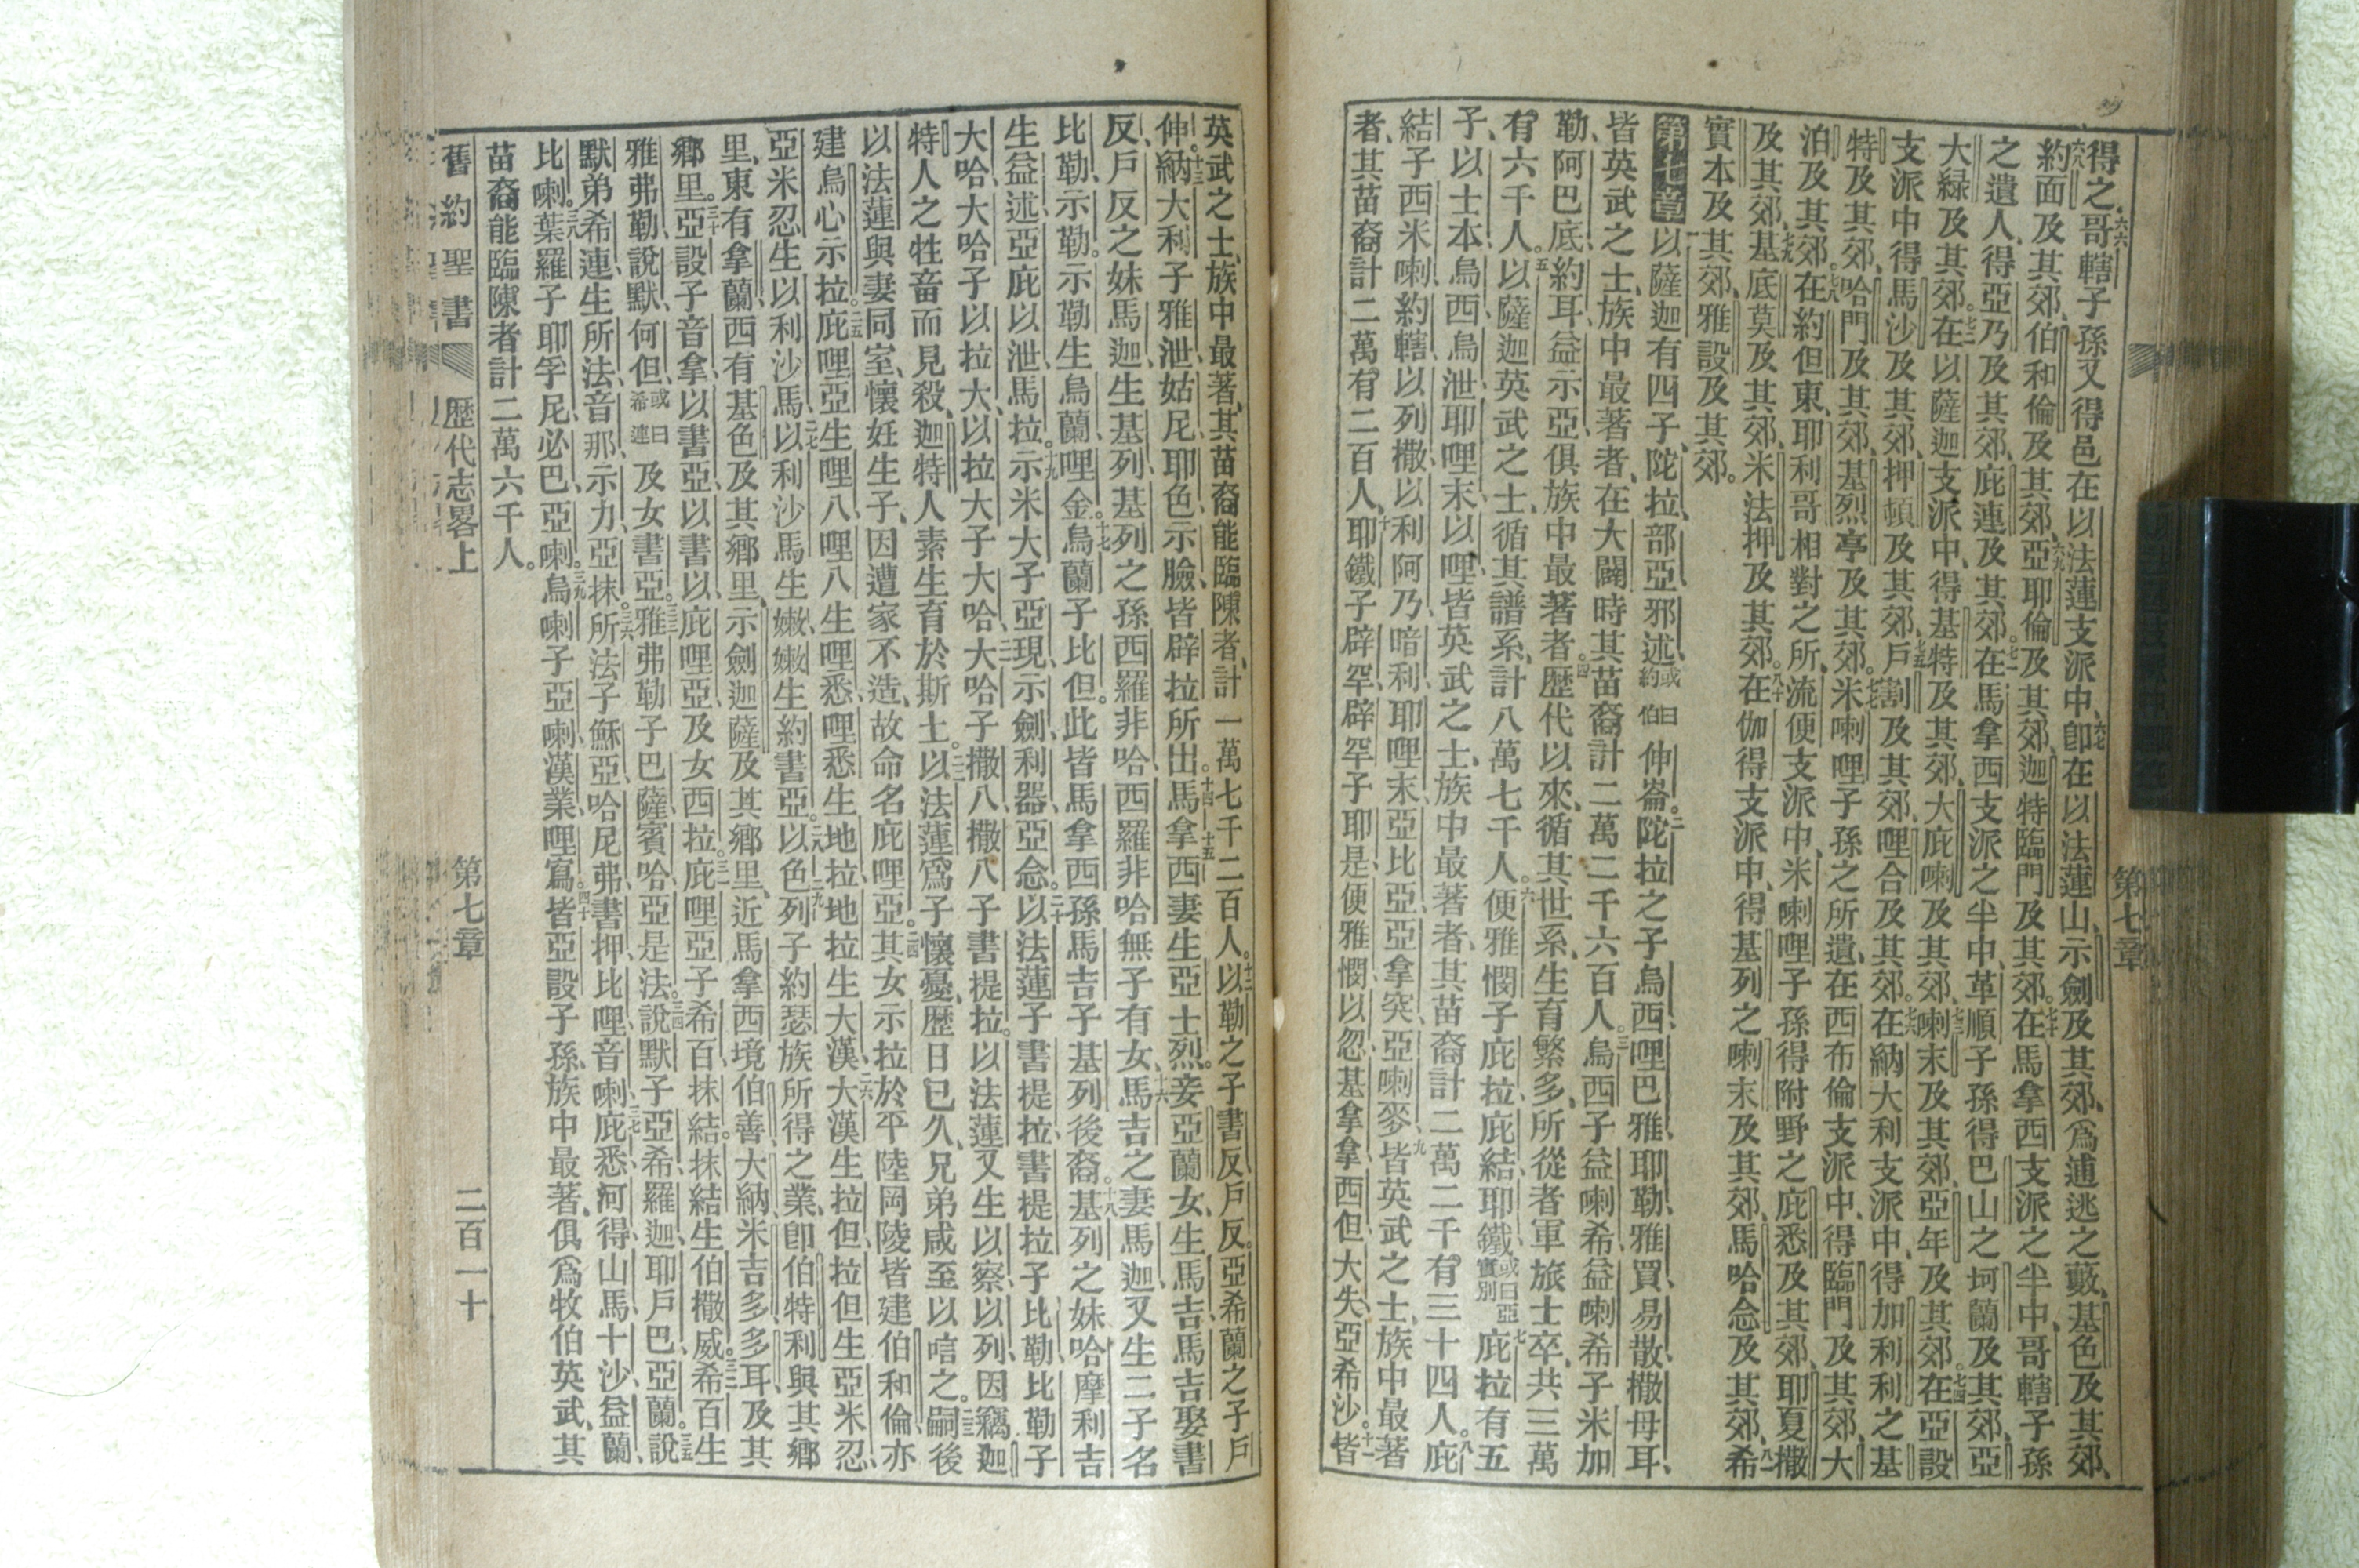 第七章
得之、六六哥轄子孫又得邑在以法蓮支派中、六七卽在以法蓮山、示劍及其郊、爲逋逃之藪、基色及其郊、
六八約面及其郊、伯和倫及其郊、六九亞耶倫及其郊、迦特臨門及其郊。七十在馬拿西支派之半中、哥轄子孫
之遺人、得亞乃及其郊、庇連及其郊。七一在馬拿西支派之半中、革順子孫得巴山之坷蘭及其郊、亞
大綠及其郊。七二在以薩迦支派中、得基特及其郊、大庇喇及其郊、七三喇末及其郊、亞年及其郊。七四在亞設
支派中得馬沙及其郊、押頓及其郊、七五戶割及其郊、哩合及其郊。七六在納大利支派中、得加利利之基
特及其郊、哈門及其郊、基烈亭及其郊。七七米喇哩子孫之所遺、在西布倫支派中、得臨門及其郊、大
泊及其郊。七八在約但東、耶利哥相對之所、流便支派中、米喇哩子孫得附野之庇悉及其郊、耶夏撒
及其郊、七九基底莫及其郊、米法押及其郊。八十在伽得支派中、得基列之喇末及其郊、馬哈念及其郊、八一希
實本及其郊、雅設及其郊。
第七章 一以薩迦有四子、陀拉、部亞、邪述、或曰約伯 仲崙。二陀拉之子烏西、哩巴雅、耶勒、雅買、易散、撒母耳、
皆英武之士、族中最著者、在大闢時其苗裔計二萬二千六百人。三烏西子益喇希、益喇希子米加
勒、阿巴底、約耳、益示亞、俱族中最著者。四歷代以來、循其世系、生育繁多、所從者軍旅士卒、共三萬
有六千人。五以薩迦英武之士、循其譜系、計八萬七千人。六便雅憫子庇拉、庇結、耶鐵、或曰亞實別 七庇拉有五
子、以士本、烏西、烏泄、耶哩末、以哩、皆英武之士、族中最著者、其苗裔計二萬二千有三十四人。八庇
結子西米喇、約轄、以列撒、以利阿乃、暗利、耶哩末、亞比亞、亞拿突、亞喇麥、九皆英武之士、族中最著
者、其苗裔計二萬有二百人、十耶鐵子辟罕、辟罕子耶是、便雅憫、以忽、基拿拿、西但、大失、亞希沙。十一皆
英武之士、族中最著、其苗裔能臨陳者、計一萬七千二百人。十二以勒之子書反、戶反。亞希蘭之子戶
伸。十三納大利子雅泄、姑尼、耶色、示臉、皆辟拉所出。十四十五馬拿西妻生亞士烈。妾亞蘭女、生馬吉、馬吉娶書
反、戶反之妹馬迦、生基列、基列之孫西羅非哈、西羅非哈無子有女、十六馬吉之妻馬迦又生二子、名
比勒示勒。示勒生烏蘭、哩金。十七烏蘭子比但。此皆馬拿西孫馬吉子基列後裔。十八基列之妹哈摩利吉
生益述、亞庇以泄、馬拉。十九示米大子亞現、示劍、利器、亞念。二十以法蓮子書提拉、書提拉子比勒、比勒子
大哈、大哈子以拉大、以拉大子大哈、二一大哈子撒八、撒八子書提拉。以法蓮又生以察、以列、因竊迦
特人之牲畜而見殺、迦特人素生育於斯土。二二以法蓮爲子懷憂、歷日已久、兄弟咸至以唁之。二三嗣後
以法蓮與妻同室、懷妊生子、因遭家不造、故命名庇哩亞。二四其女示拉於平陸岡陵皆建伯和倫、亦
建烏心示拉。二五庇哩亞生哩八、哩八生哩悉、哩悉生地拉、地拉生大漢、二六大漢生拉但、拉但生亞米忍、
亞米忍生以利沙馬、二七以利沙馬生嫩、嫩生約書亞。二八以色列子約瑟族所得之業、卽伯特利與其鄉
里、東有拿蘭、西有基色及其鄉里、示劍、迦薩及其鄉里、二九近馬拿西境伯善、大納、米吉多、多耳、及其
鄉里。三十亞設子音拿、以書亞、以書以、庇哩亞、及女西拉。三一庇哩亞子希百、抹結。抹結生伯撒威。三二希百生
雅弗勒、說默、何但、或曰希連 及女書亞。三三雅弗勒子巴薩、賓哈、亞是法。三四說默子亞希、羅迦、耶戶巴、亞蘭。三五說
默弟希連生所法、音那、示力、亞抹。三六所法子穌亞、哈尼弗、書押、比哩、音喇、三七庇悉、河得、山馬、十沙、益蘭、
比喇。三八葉羅子耶孚尼、必巴、亞喇。三九烏喇子亞喇、漢業、哩寫。四十皆亞設子孫、族中最著、俱爲牧伯英武、其
苗裔能臨陳者、計二萬六千人。
舊約聖書 歷代志畧上 第七章 二百一十